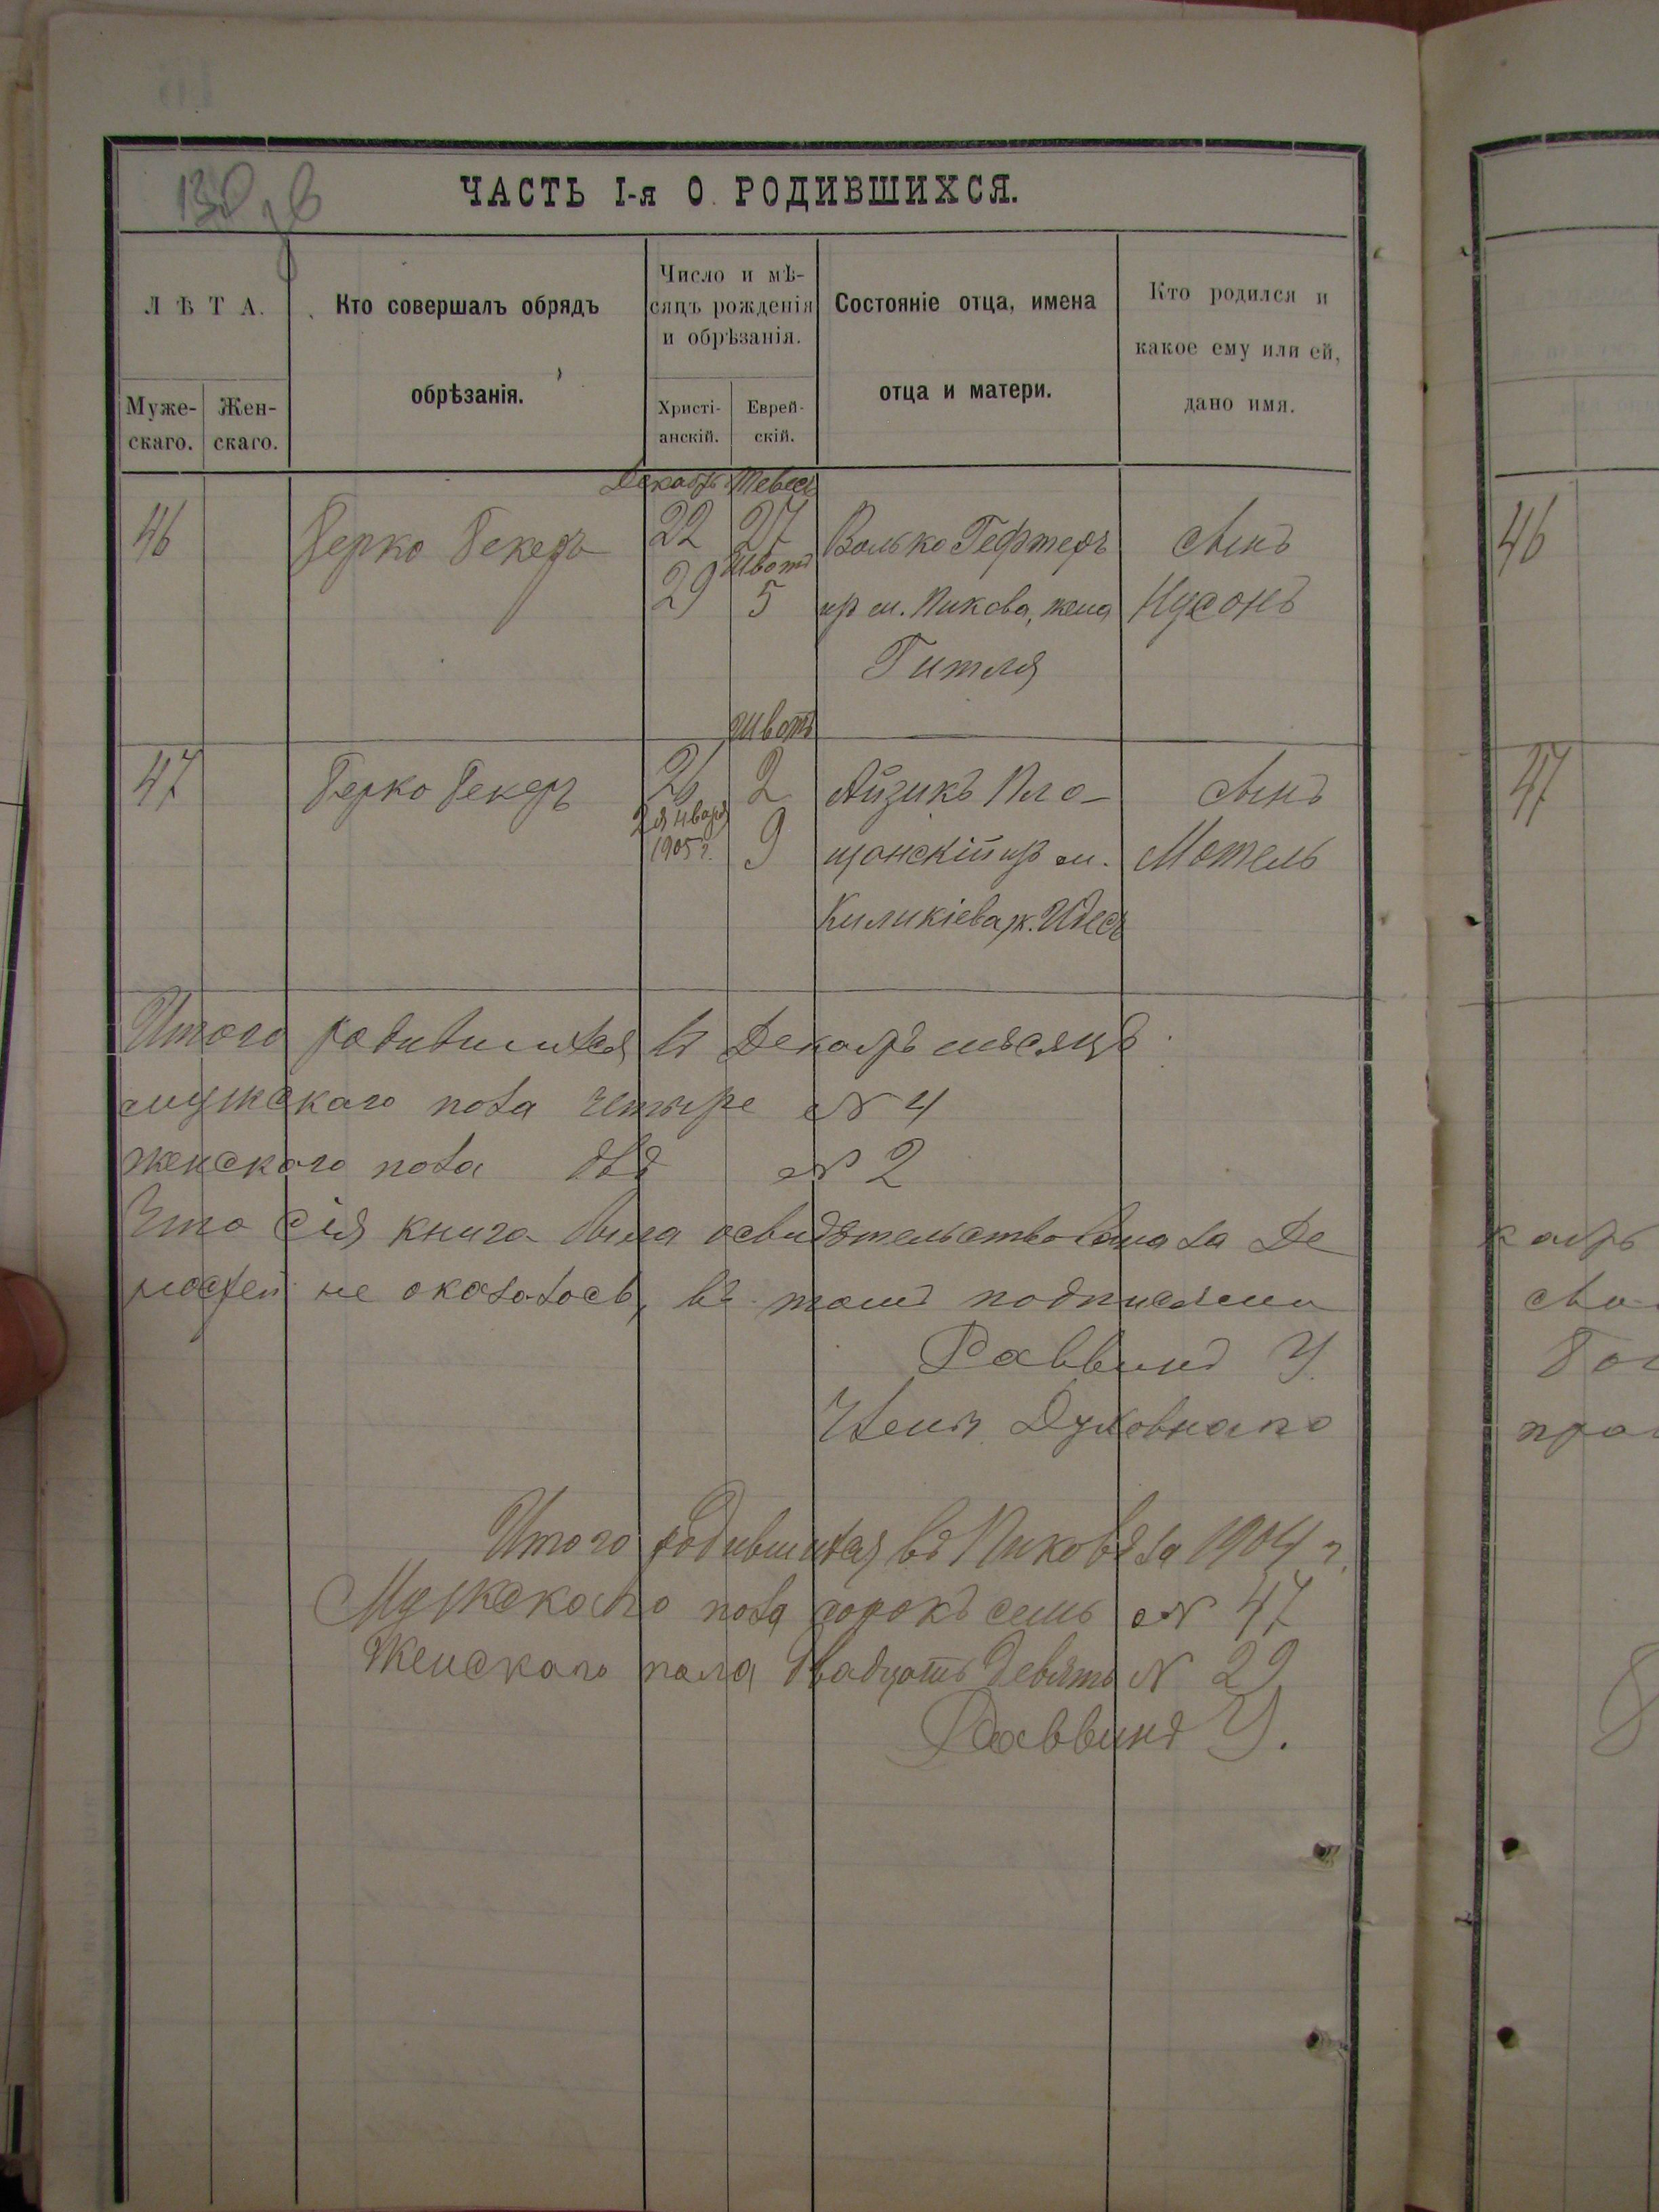 ЧАСТЬ I-я О РОДИВШИХСЯ.
ЛѢТА.
Муже-
скаго.
Жен-
скаго.
Кто совершалъ обрядъ
обрѣзанія.
Число и мѣ-
сяцъ рожденія
и обрѣзанія.
Христі-
анскій.
Еврей-
скій.
Состояніе отца, имена
отца и матери.
Кто родился и
какое ему или ей,
дано имя.
46
Берко Бекеръ
Декабрь
22
29
Тевесъ
27
Шватъ
5
Волько Гефтеръ
м. Пикова, жена
Гитля
Сынъ
Нусонъ
46
47
Берко Бекеръ
26
2 января
1905 г.
Шватъ
2
9
Айзикъ Пло-
щанскій м.
Киликіева ж. Идесъ
Сынъ
Мотель
47
Итого родившихся въ Декабрѣ мѣсяцѣ
мужскаго пола четыре № 4
женскаго пола двѣ № 2
Что сія книга была освидѣтельствована за Де
ностей не оказалось, въ томъ подписями
Раввинъ У.
Членъ Духовнаго
Итого родившихся въ Пиковѣ за 1904 г.
Мужскаго пола сорокъ семь № 47
Женскаго пола двадцать девять № 29
Раввинъ У.
кабрь